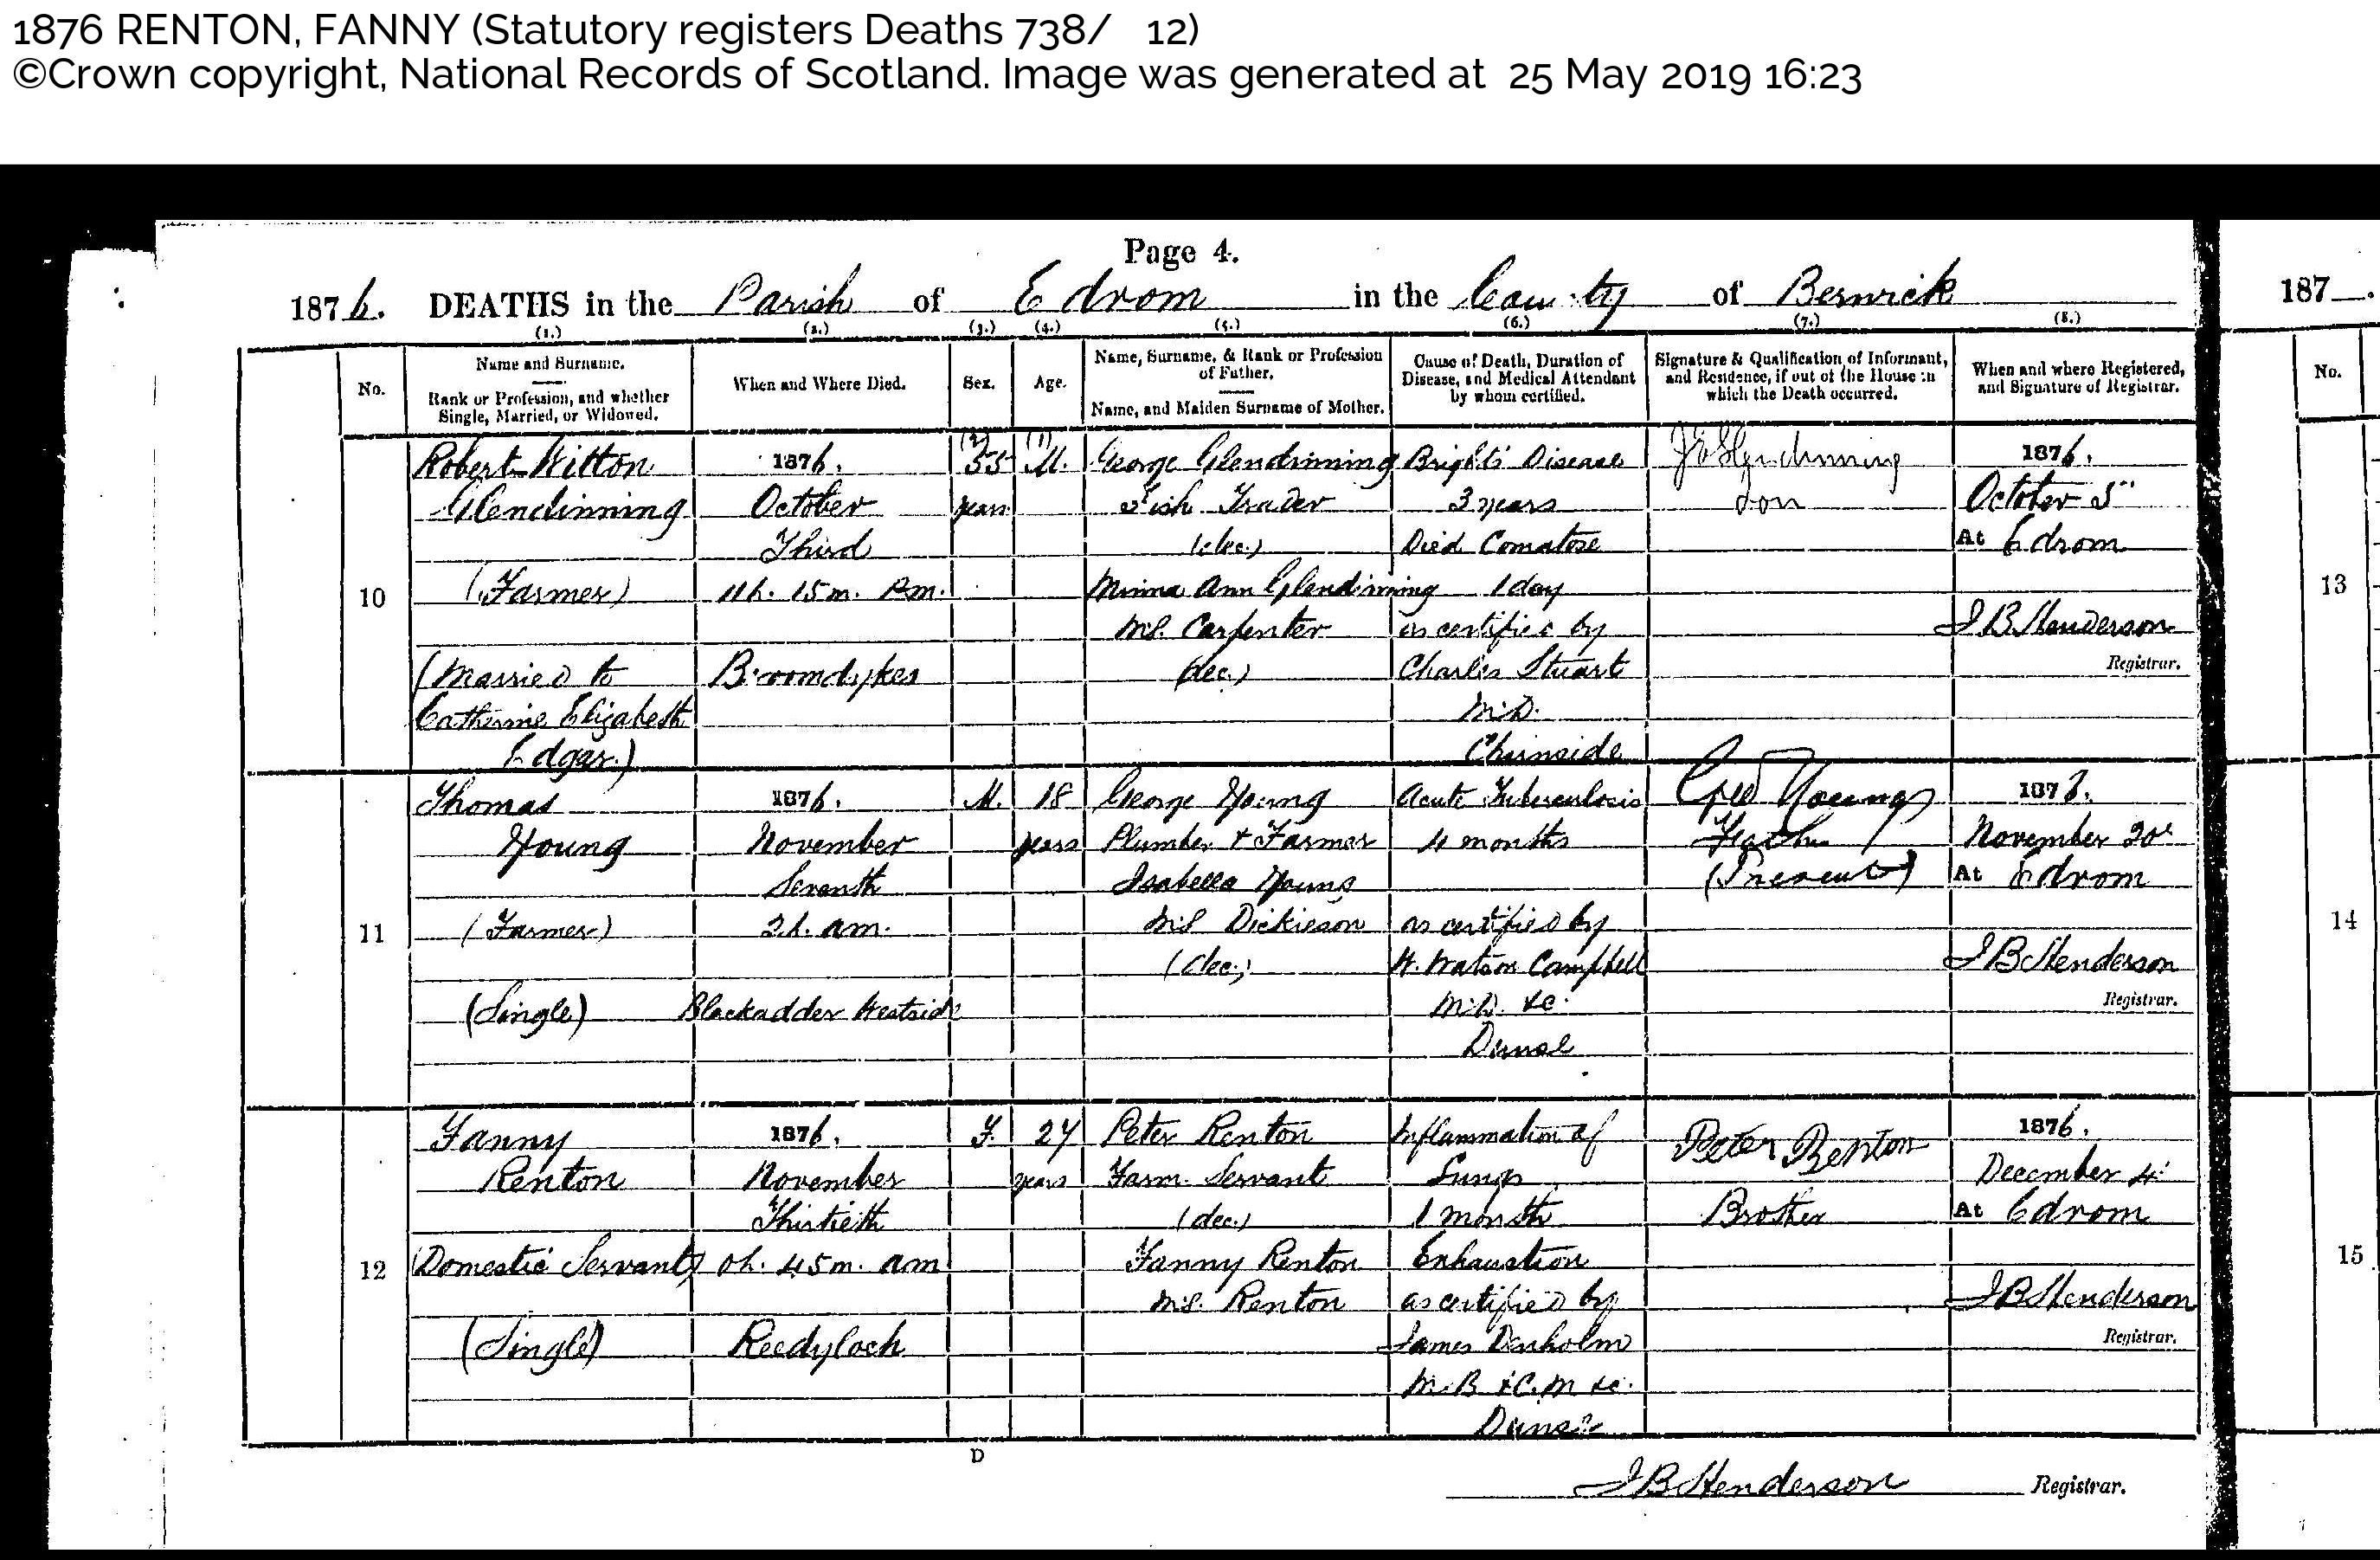 1876 RENTON, FANNY (Statutory registers Deaths 738/ 12)
©Crown copyright, National Records of Scotland. Image was generated at 25 May 2019 16:23
Page 4.
1876. DEATHS in the Parish of Edrom in the County of Berwick
187 .
(1.) (2.) (3.) (4.) (5.) (6.) (7.) (8.)
No.
Name and Surname.
Rank or Profession, and whether
Single, Married, or Widowed.
When and Where Died.
Sex.
Age.
Name, Surname, & Rank or Profession
of Father.
Name, and Maiden Surname of Mother.
Cause of Death, Duration of
Disease, and Medical Attendant
by whom certified.
Signature & Qualification of Informant,
and Residence, if out of the House in
which the Death occurred.
When and where Registered,
and Signature of Registrar.
No.
10
Robert Witton
Glendinning
(Farmer)
(Married to
Catherine Elizabeth
Edgar.)
1876.
October
Third
11h. 15m. P.m.
Broomdykes
(2)
55
years
(1)
M.
George Glendinning
Fish Trader
(dec.)
Minna Ann Glendinning
M.S. Carpenter
(dec.)
Brights' Disease
3 years
Died Comatose
1 day
as certified by
Charles Stuart
M.D.
Chirnside
Glendinning
Son
1876.
October 5"
At Edrom
J B Henderson
Registrar.
13
11
Thomas
Young
(Farmer)
(Single)
1876.
November
Seventh
2h. am.
Blackadder Westside
M.
18
years
George Young
Plumber & Farmer
Isabella Young
M.S. Dickieson
(dec.)
Acute Tuberculosis
4 months
as certified by
W. Watson Campbell
M.D. &c.
Dunse
Geo Young
Father
(Present)
1876.
November 20
At Edrom
J B Henderson
Registrar.
14
12
Fanny
Renton
(Domestic Servant)
(Single)
1876.
November
Thirtieth
0h. 45m. am
Reedyloch
F.
27
years
Peter Renton
Farm Servant
(dec.)
Fanny Renton
M.S. Renton
Inflammation of
Lungs
1 month
Exhaustion
as certified by
James Denholm
M.B. & C.M &c.
Dunse
Peter Renton
Brother
1876.
December 4
At Edrom
J B Henderson
Registrar.
15
D
J B Henderson Registrar.